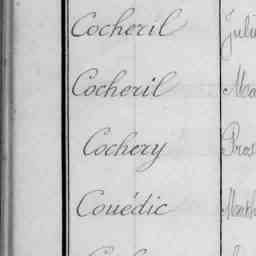 Cocheril Juli
Cocheril Ma
Cochery Pros
Couédic